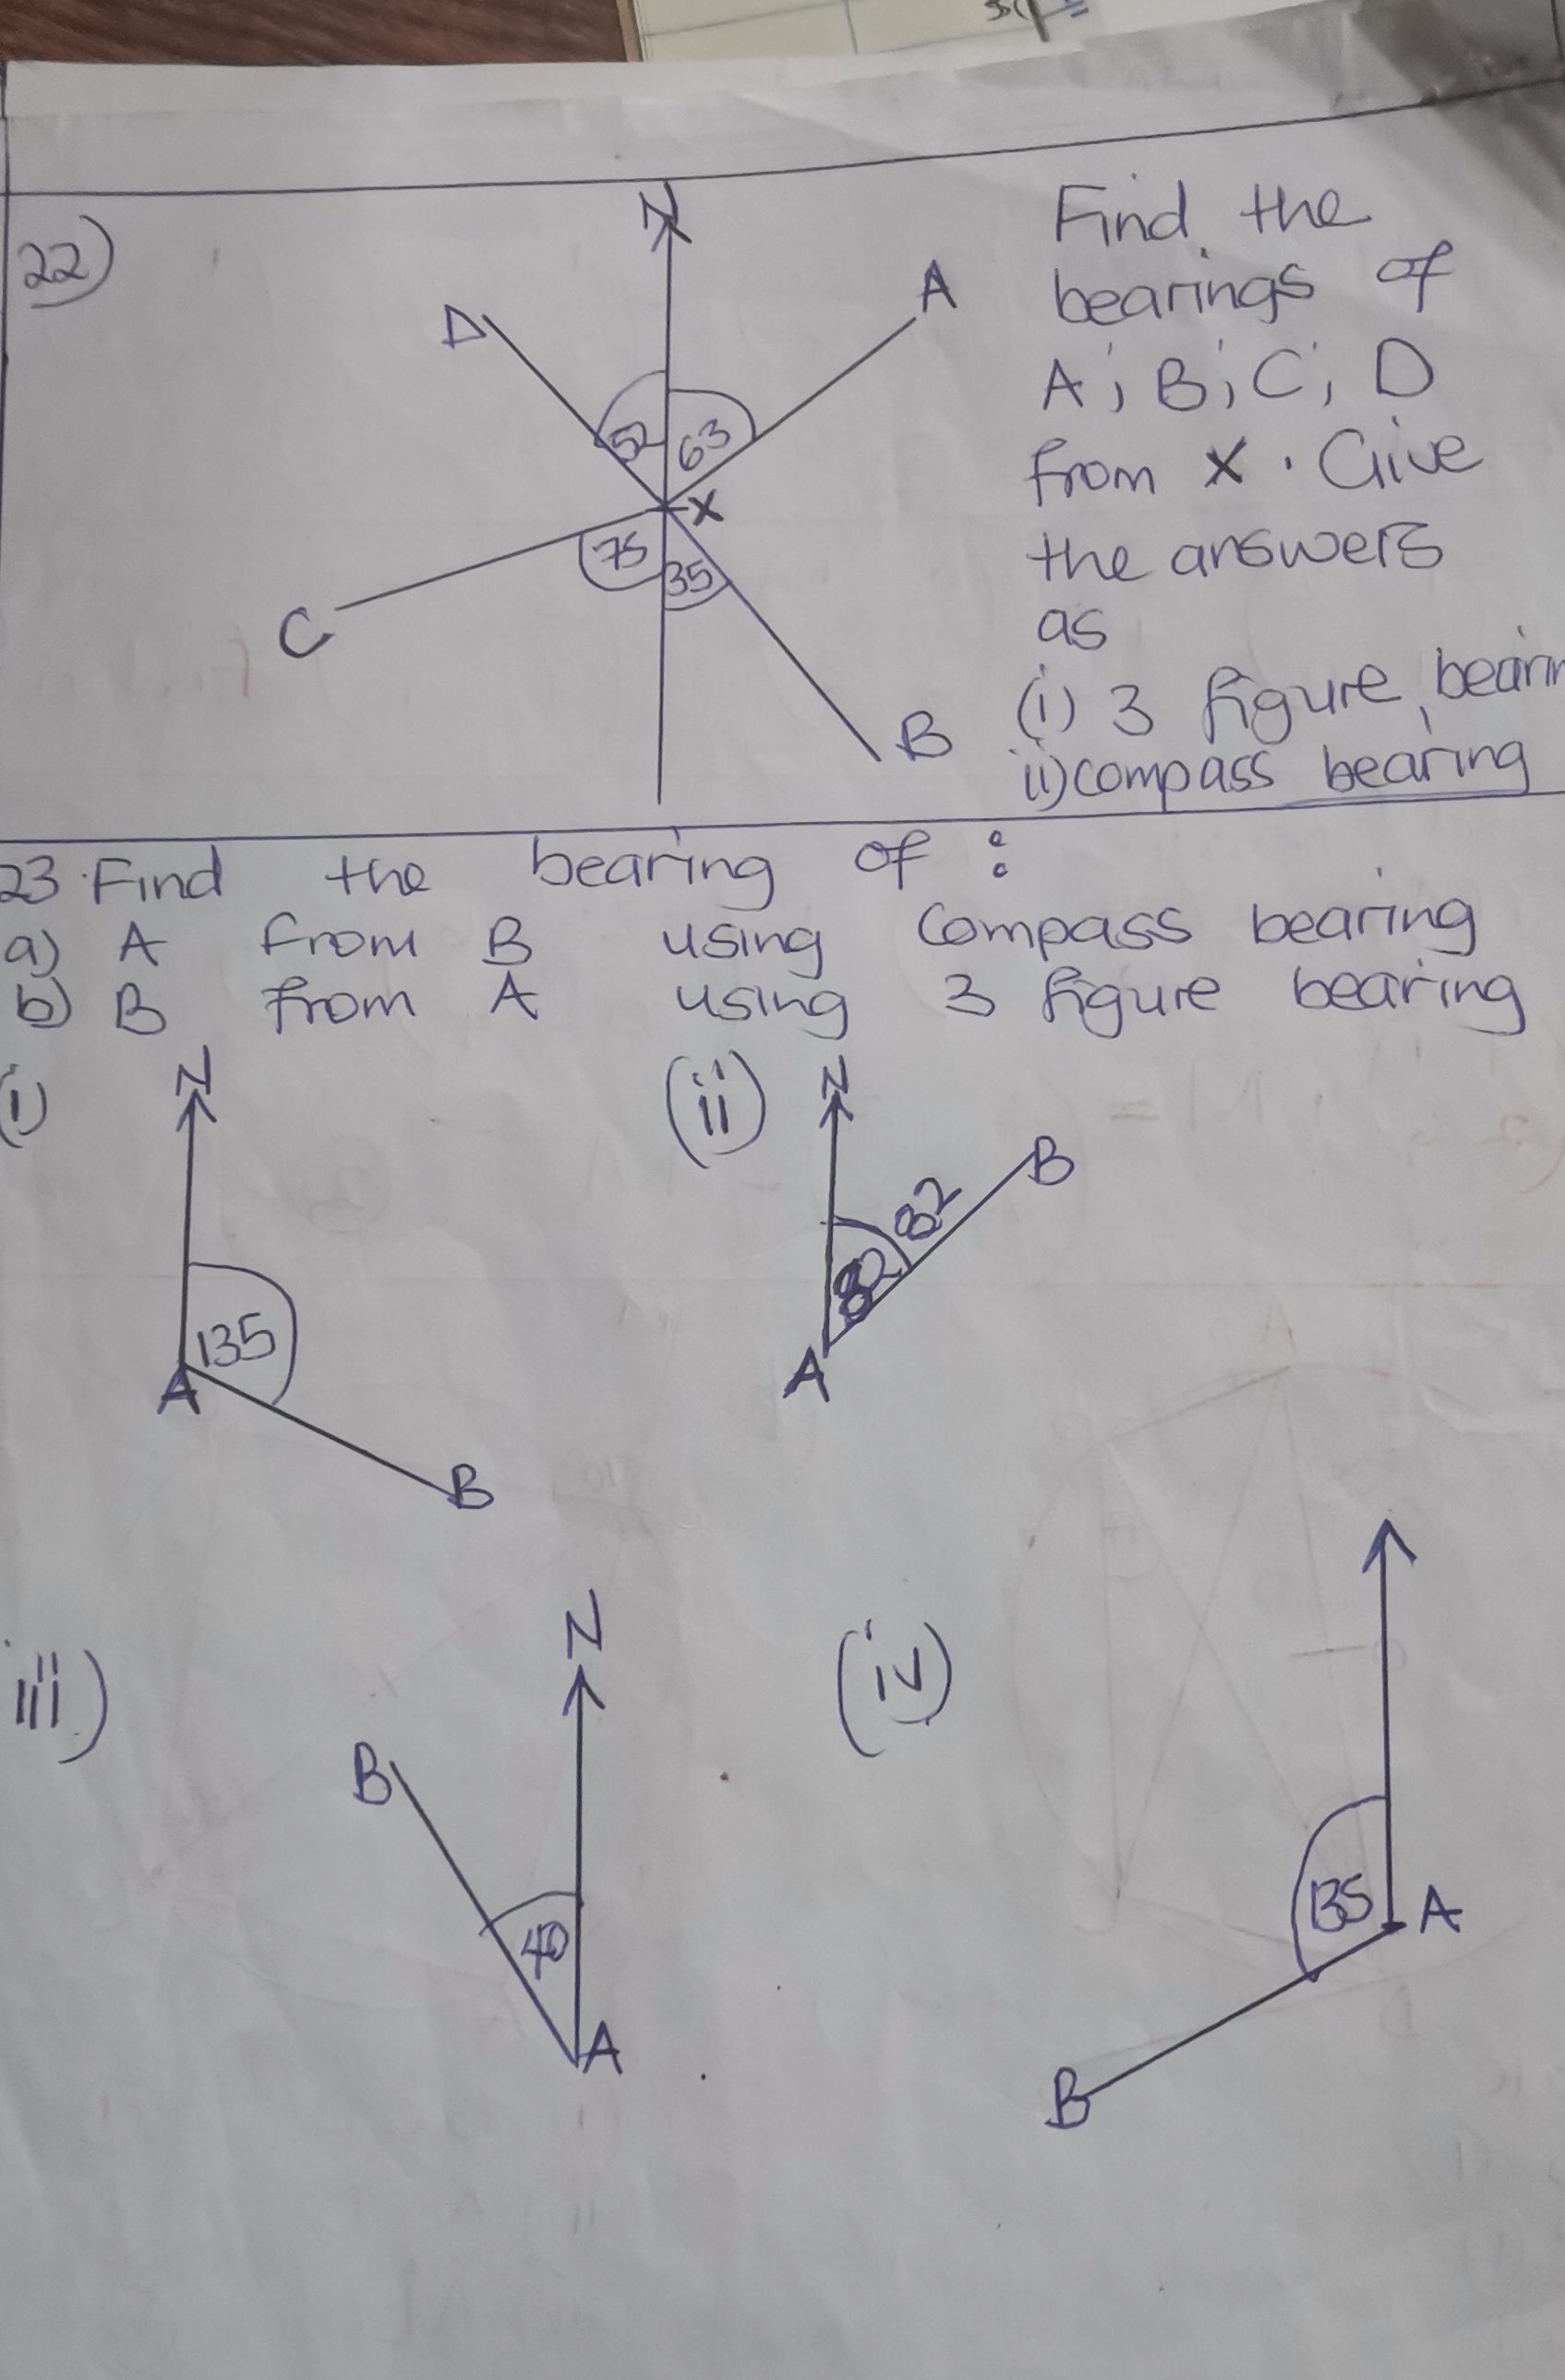 22)
N
D
A
52
63
X
75
35
C
B
Find the
bearings of
A; B; C; D
from X. Give
the answers
as
(i) 3 figure, bearin
ii) compass bearing
23. Find the bearing of :
a) A from B using compass bearing
b) B from A using 3 figure bearing
(i)
N
135
A
B
(ii)
N
B
82
82
A
iii)
N
B
40
A
(iv)
135
A
B